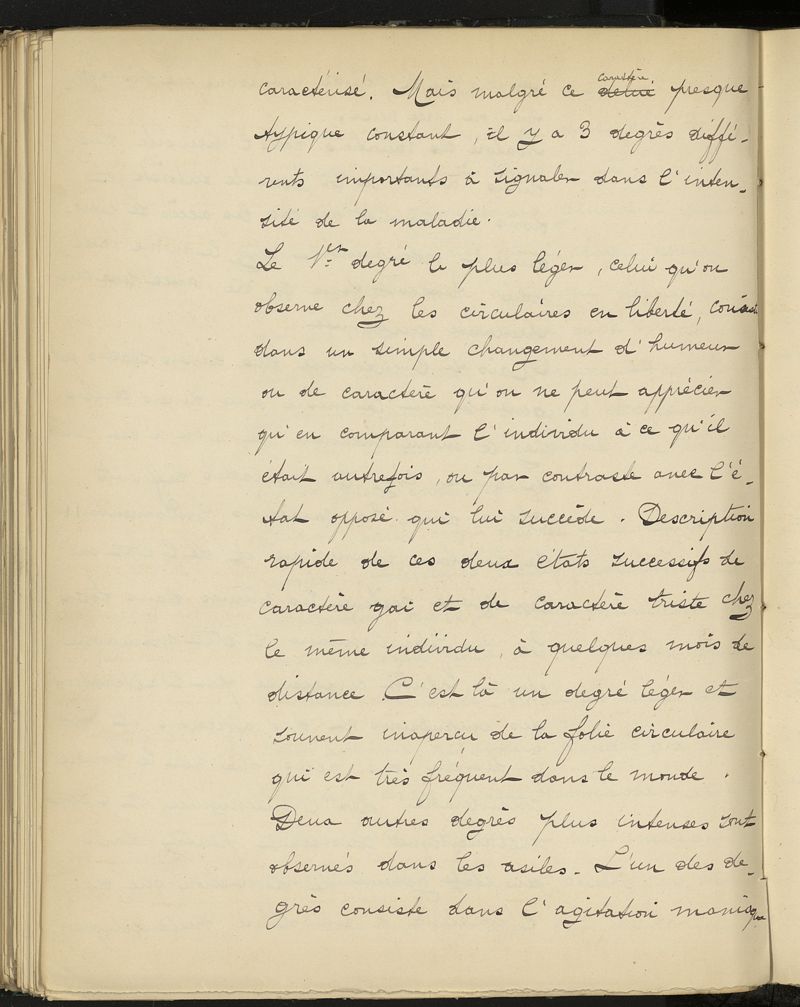 caractérisé. Mais malgré ce caractère presque
typique constant, il y a 3 degrès diffé-
rents importants à signaler dans l'inten-
sité de la maladie.
Le 1er degré le plus léger, celui qu'on
observe chez les circulaires en liberté,
dans un simple changement d'humeur
ou de caractère qu'on ne peut apprécier
qu'en comparant l'individu à ce qu'il
était autrefois, ou par contraste avec l'é-
tat opposé qui lui succède. Description
rapide de ces deux états successifs de
caractère gai et de caractère triste chez
le même individu, à quelques mois de
distance. C'est là un degré léger et
souvent inaperçu de la folie circulaire
qui est très fréquent dans le monde.
Deux autres degrès plus intenses sont
observés dans les asiles. L'un des de-
grès consiste dans l'agitation maniaque